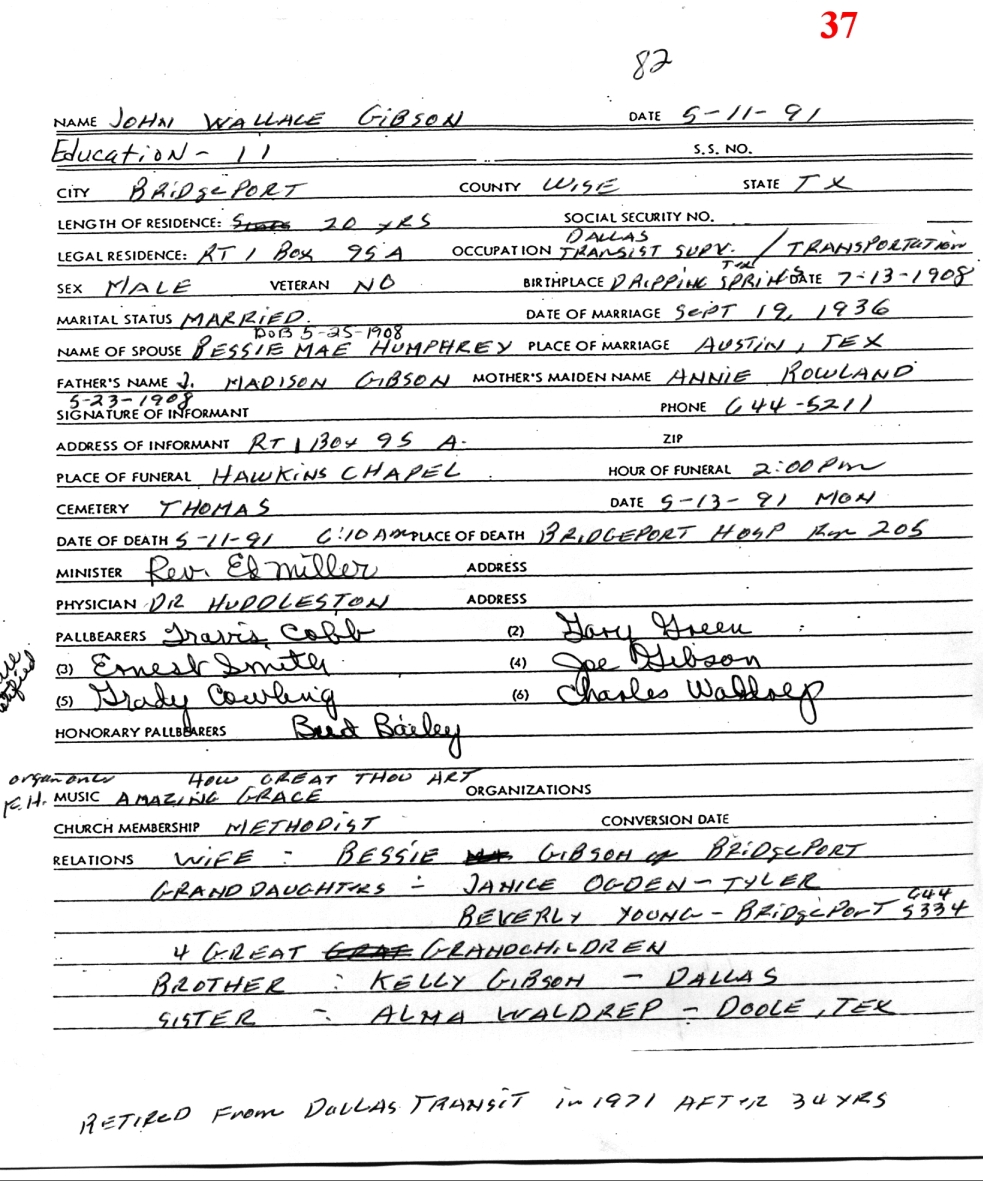 37
82
NAME JOHN WALLACE GIBSON DATE 5-11-91
Education - 11 S.S. NO.
CITY BRIDGEPORT COUNTY WISE STATE TX
LENGTH OF RESIDENCE: 20 YRS SOCIAL SECURITY NO.
DALLAS
LEGAL RESIDENCE: RT 1 Box 95 A OCCUPATION TRANSIST SUPV. / TRANSPORTATION
SEX MALE VETERAN NO BIRTHPLACE DRIPPING SPRINGS TEX DATE 7-13-1908
MARITAL STATUS MARRIED. DATE OF MARRIAGE SEPT 19, 1936
DOB 5-25-1908
NAME OF SPOUSE BESSIE MAE HUMPHREY PLACE OF MARRIAGE AUSTIN, TEX
FATHER'S NAME J. MADISON GIBSON MOTHER'S MAIDEN NAME ANNIE ROWLAND
5-23-1908
SIGNATURE OF INFORMANT PHONE 644-5211
ADDRESS OF INFORMANT RT 1 BOX 95 A- ZIP
PLACE OF FUNERAL HAWKINS CHAPEL HOUR OF FUNERAL 2:00 Pm
CEMETERY THOMAS DATE 5-13-91 MON
DATE OF DEATH 5-11-91 6:10 AM PLACE OF DEATH BRIDGEPORT HOSP Rm 205
MINISTER Rev. Ed Miller ADDRESS
PHYSICIAN DR HUDDLESTON ADDRESS
PALLBEARERS Travis Cobb (2) Gary Green
(3) Ernest Smith (4) Joe Gibson
(5) Grady Cowling (6) Charles Waldrep
HONORARY PALLBEARERS Bud Bailey
organ only HOW GREAT THOU ART
K.H. MUSIC AMAZING GRACE ORGANIZATIONS
CHURCH MEMBERSHIP METHODIST CONVERSION DATE
RELATIONS WIFE : BESSIE GIBSON of BRIDGEPORT
GRANDDAUGHTERS - JANICE OGDEN - TYLER
BEVERLY YOUNG - BRIDGEPORT 644 5334
4 GREAT GRANDCHILDREN
BROTHER : KELLY GIBSON - DALLAS
SISTER - ALMA WALDREP - DOOLE, TEX
RETIRED From DALLAS TRANSIT in 1971 AFTER 34 YRS